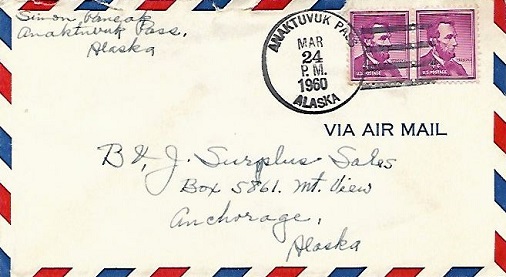 Simon Paneak
Anaktuvuk Pass,
Alaska
ANAKTUVUK PASS
MAR
24
P.M.
1960
ALASKA
U.S. POSTAGE
U.S. POSTAGE
VIA AIR MAIL
B & J. Surplus Sales
Box 5861. Mt. View
Anchorage,
Alaska